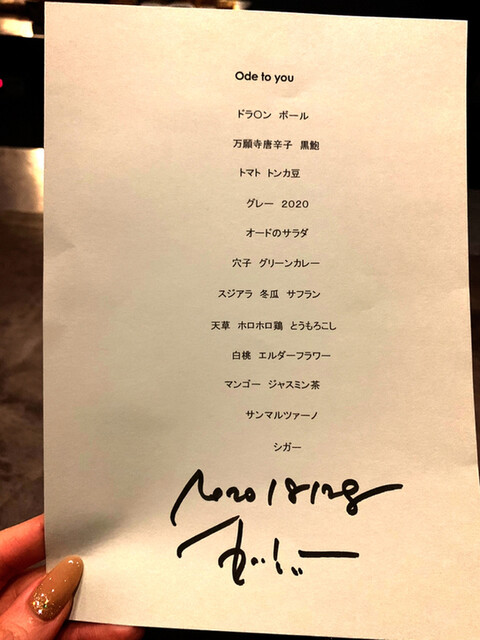 Ode to you
ドラ〇ン ボール
万願寺唐辛子 黒鮑
トマト トンカ豆
グレー 2020
オードのサラダ
穴子 グリーンカレー
スジアラ 冬瓜 サフラン
天草 ホロホロ鶏 とうもろこし
白桃 エルダーフラワー
マンゴー ジャスミン茶
サンマルツァーノ
シガー
2020/8/28